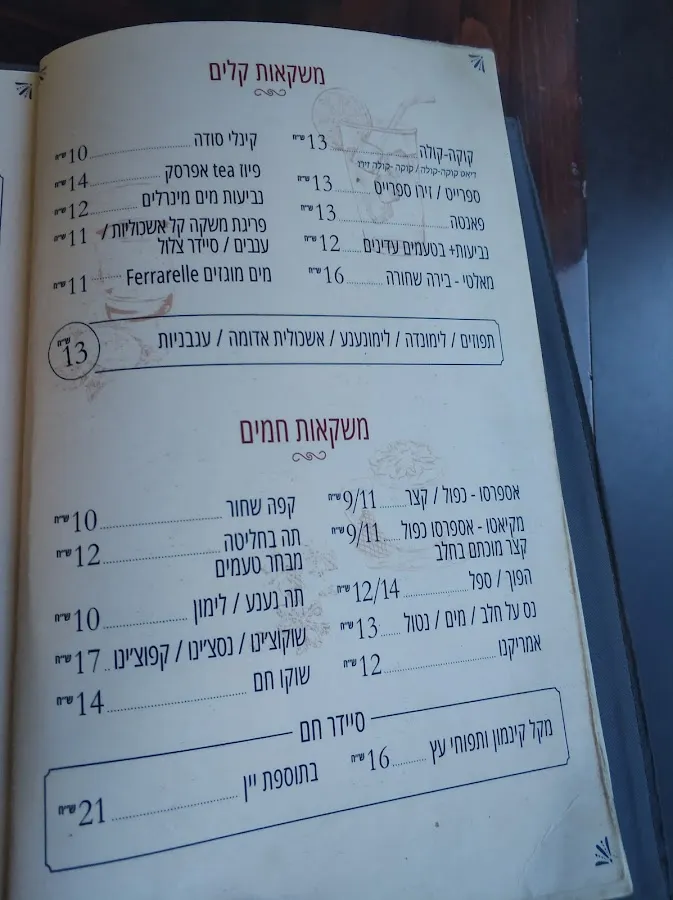 משקאות קלים
קוקה-קולה 13 ש״ח
דיאט קוקה-קולה / קוקה -קולה זירו
ספרייט / זירו ספרייט 13 ש״ח
פאנטה 13 ש״ח
נביעות+ בטעמים עדינים 12 ש״ח
מאלטי - בירה שחורה 16 ש״ח
קינלי סודה 10 ש״ח
פיוז tea אפרסק 14 ש״ח
נביעות מים מינרלים 12 ש״ח
פריגת משקה קל אשכוליות / 11 ש״ח
ענבים / סיידר צלול
מים מוגזים Ferrarelle 11 ש״ח
תפוזים / לימונדה / לימונענע / אשכולית אדומה / ענבניות 13 ש״ח
משקאות חמים
אספרסו - כפול / קצר 9/11 ש״ח
מקיאטו - אספרסו כפול 9/11 ש״ח
קצר מוכתם בחלב
הפוך / ספל 12/14 ש״ח
נס על חלב / מים / נטול 13 ש״ח
אמריקנו 12 ש״ח
קפה שחור 10 ש״ח
תה בחליטה 12 ש״ח
מבחר טעמים
תה נענע / לימון 10 ש״ח
שוקוצ'ינו / נסצ'ינו / קפוצ'ינו 17 ש״ח
שוקו חם 14 ש״ח
סיידר חם
מקל קינמון ותפוחי עץ 16 ש״ח
בתוספת יין 21 ש״ח